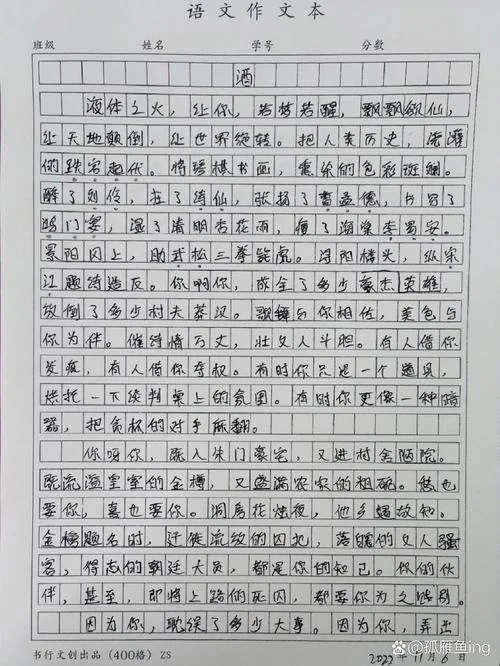 语文作文本
班级 姓名 学号 分数
酒
液体之火，让你，若梦若醒，飘飘欲仙，
让天地颠倒，让世界绝轻。把人类历史，浇灌
的跌宕起伏。将琴棋书画，熏染的色彩斑斓。
醉了刘伶，狂了诗仙，张扬了曹孟德，书写了
鸿门宴，湿了清明杏花雨，瘦了海棠李易安。
景阳冈上，助武松三拳毙虎。浔阳楼头，纵宋
江题诗造反。你啊你，成全了多少豪杰英雄，
放倒了多少村夫莽汉。歌舞与你相佐，美色与
你为伴。催诗情万丈，壮文人斗胆。有人借你
发疯，有人借你夺权。有时你只是一个道具，
烘托一下谈判桌上的氛围。有时你更像一种暗
器，把贪杯的对手麻翻。
你呀你，既入朱门豪宅，又进村舍陋院。
既流溢皇室的金樽，又盛满农家的粗碗。愁也
要你，喜也要你。洞房花烛夜，他乡遇故知。
金榜题名时，迁徙流放的囚犯，落魄的文人骚
客，得志的朝廷大员，都是你的知己。你的伙
伴，甚至，即将上路的死囚，都要你为之饯别。
因为你，耽误了多少大事。因为你，弄出
书行文创出品（400格）ZS
2022年11月6日
Bai百家号/孤雁鱼ing